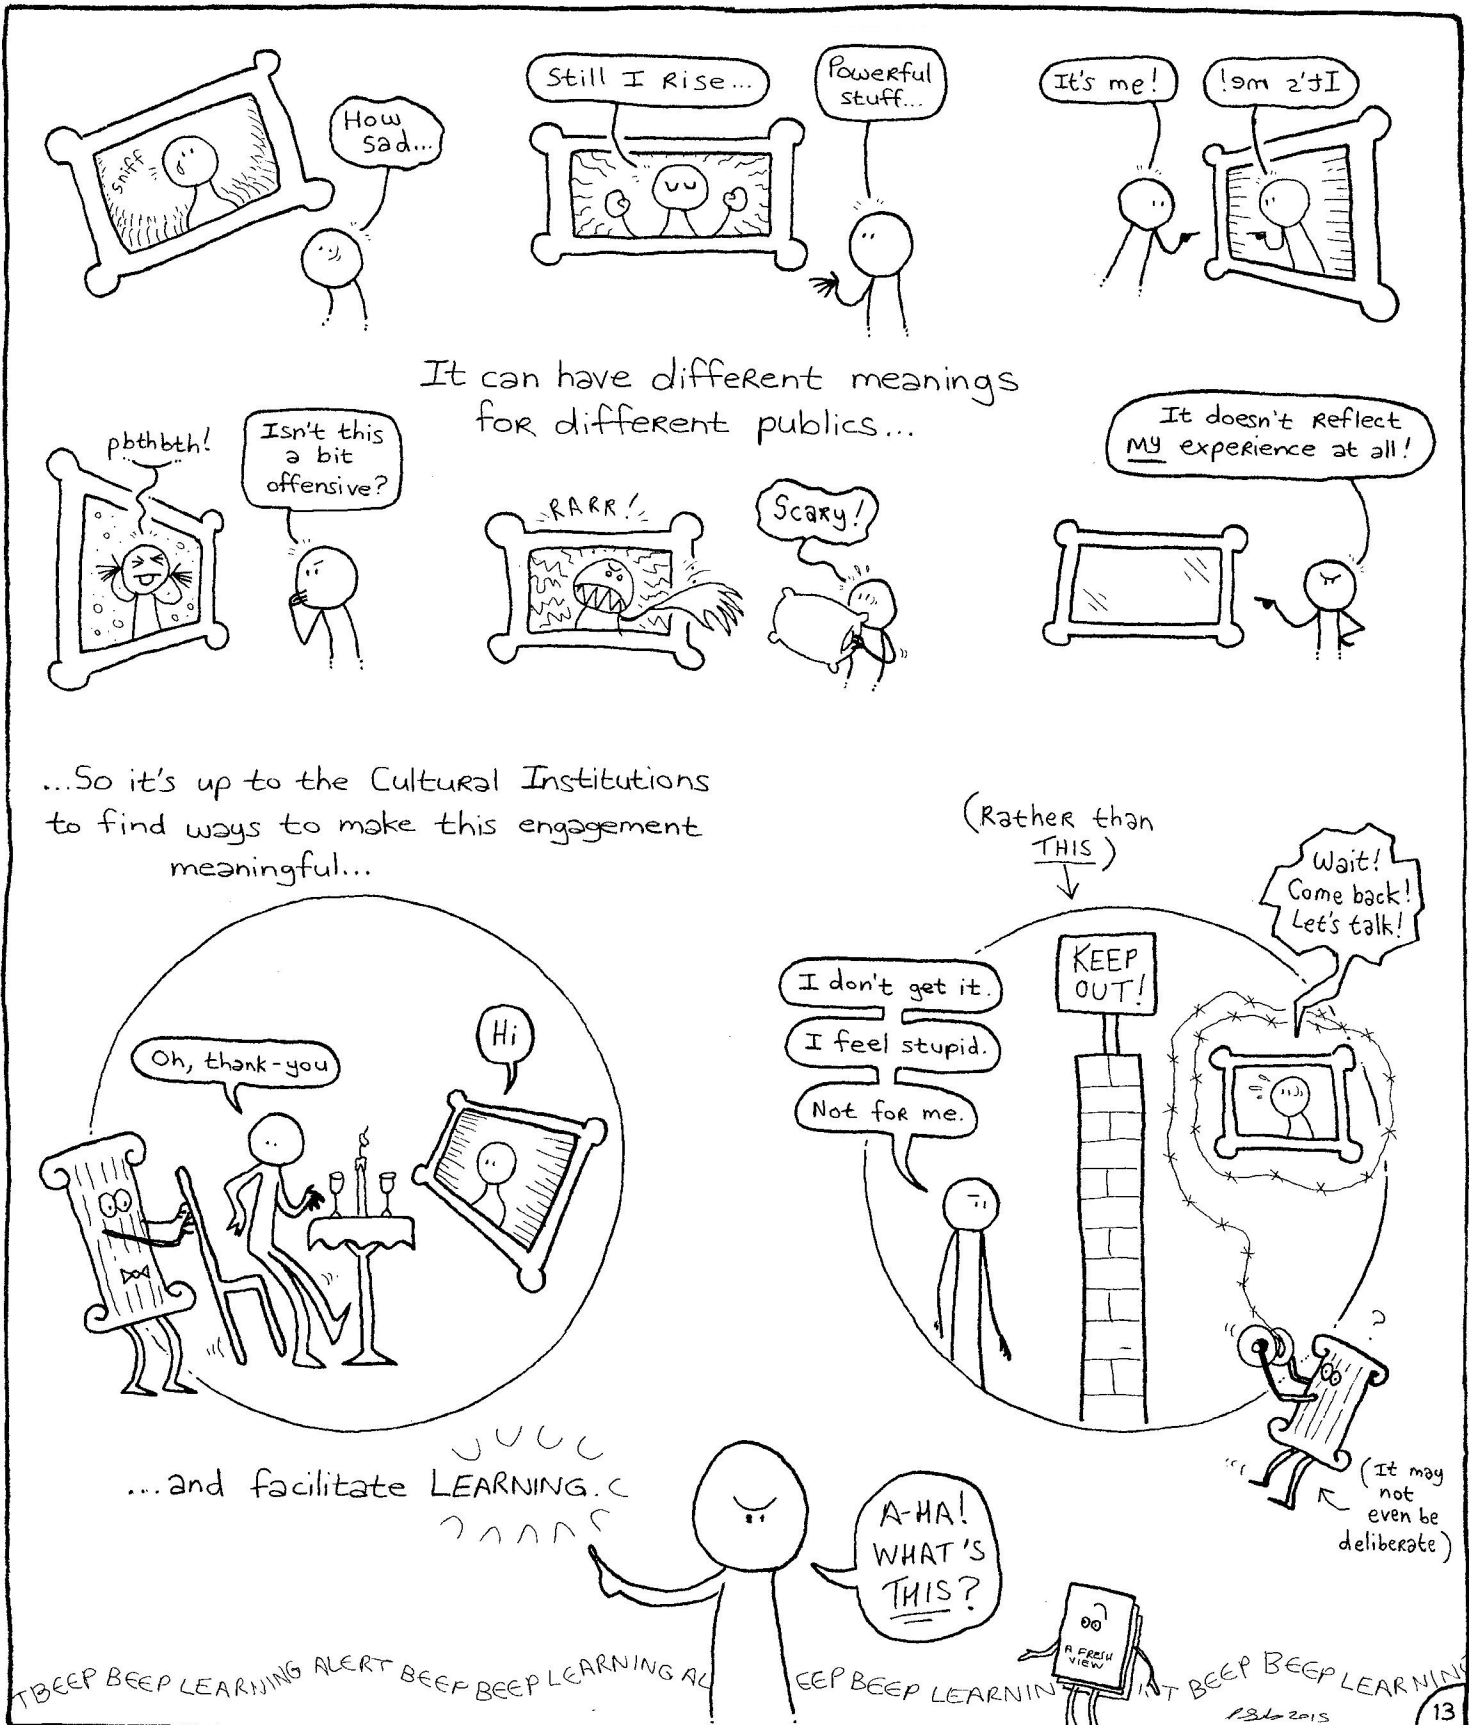 sniff
How
sad...
Still I Rise...
Powerful
stuff...
It's me!
It's me!
It can have different meanings
for different publics...
pbthbth!
Isn't this
a bit
offensive?
RARR!
Scary!
It doesn't Reflect
MY experience at all!
...So it's up to the Cultural Institutions
to find ways to make this engagement
meaningful...
Oh, thank-you
Hi
(Rather than
THIS)
Wait!
Come back!
Let's talk!
KEEP
OUT!
I don't get it.
I feel stupid.
Not for me.
?
(It may
not
even be
deliberate)
...and facilitate LEARNING.
A-HA!
WHAT'S
THIS?
A FRESH
VIEW
T BEEP BEEP LEARNING ALERT BEEP BEEP LEARNING AL EEP BEEP LEARNIN T BEEP BEEP LEARNING
2015
13